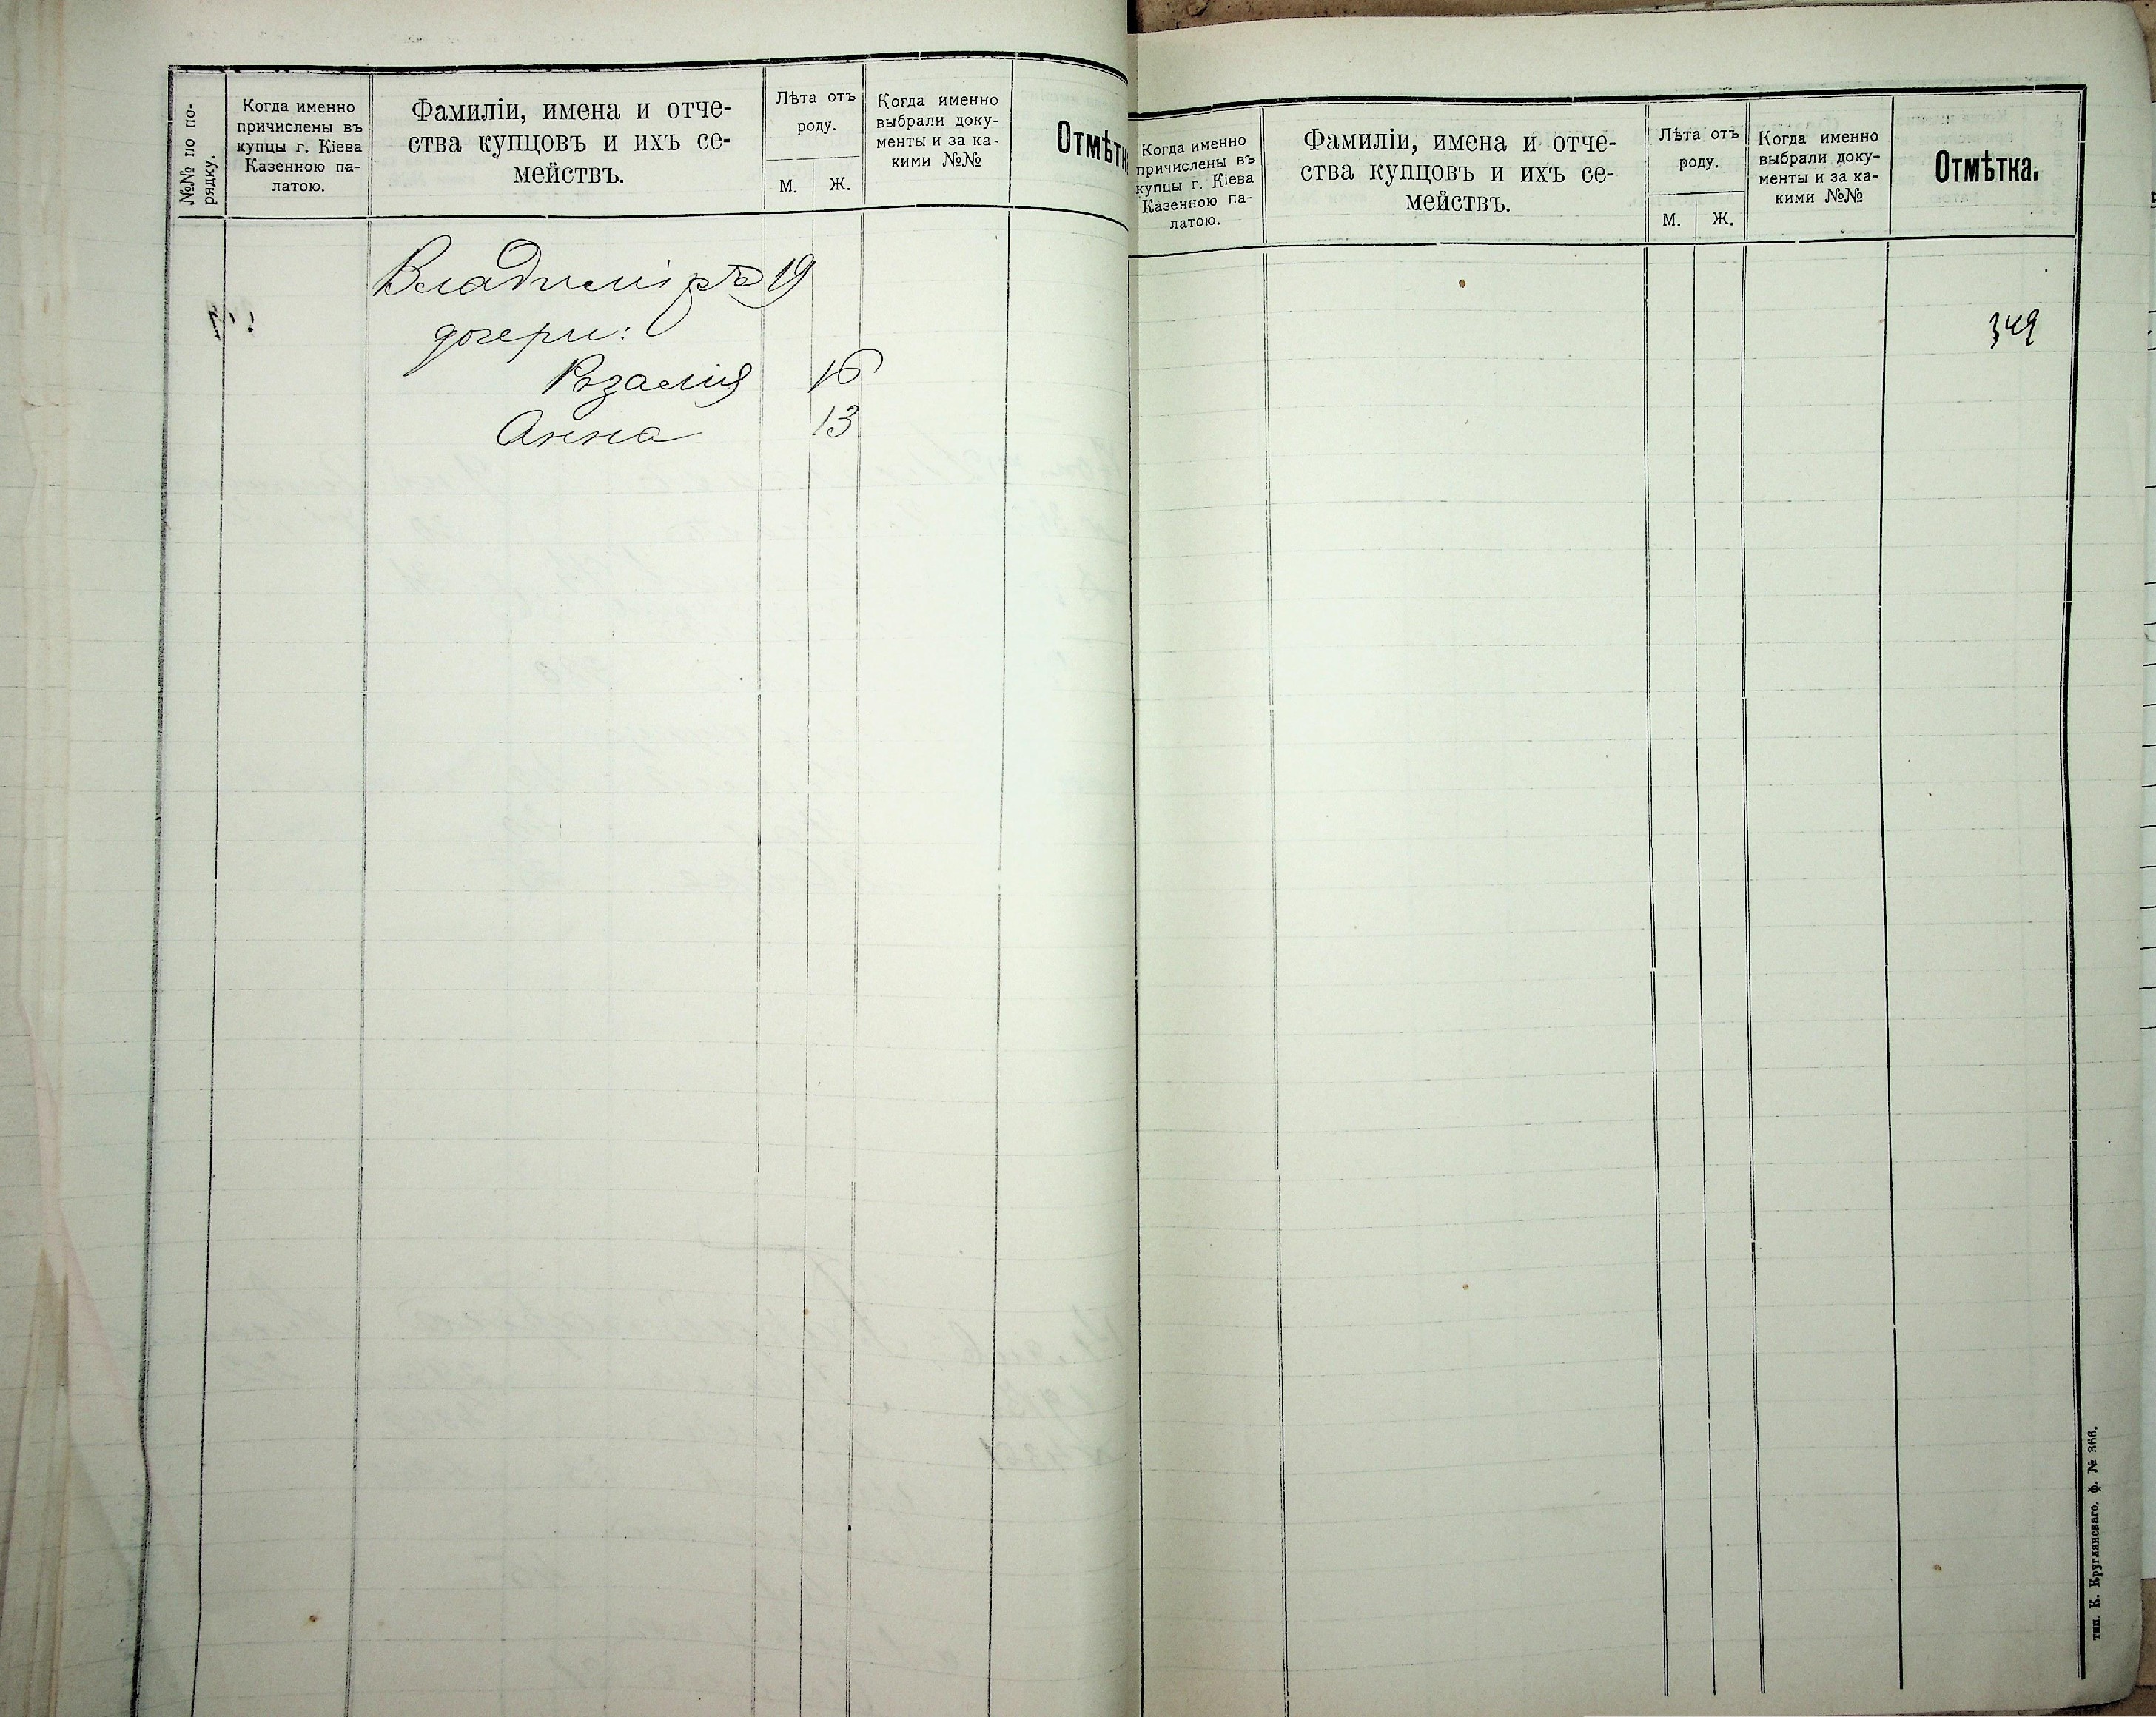 №№ по по-
рядку.
Когда именно
причислены въ
купцы г. Кіева
Казенною па-
латою.
Фамиліи, имена и отче-
ства купцовъ и ихъ се-
мействъ.
Лѣта отъ
роду.
М.
Ж.
Когда именно
выбрали доку-
менты и за ка-
кими №№
Отмѣтк
Владиміръ 19
дочери:
Розалія 16
Анна 13
Когда именно
причислены въ
купцы г. Кіева
Казенною па-
латою.
Фамиліи, имена и отче-
ства купцовъ и ихъ се-
мействъ.
Лѣта отъ
роду.
М.
Ж.
Когда именно
выбрали доку-
менты и за ка-
кими №№
Отмѣтка.
349
тип. К. Круглянскаго. ф. № 366.